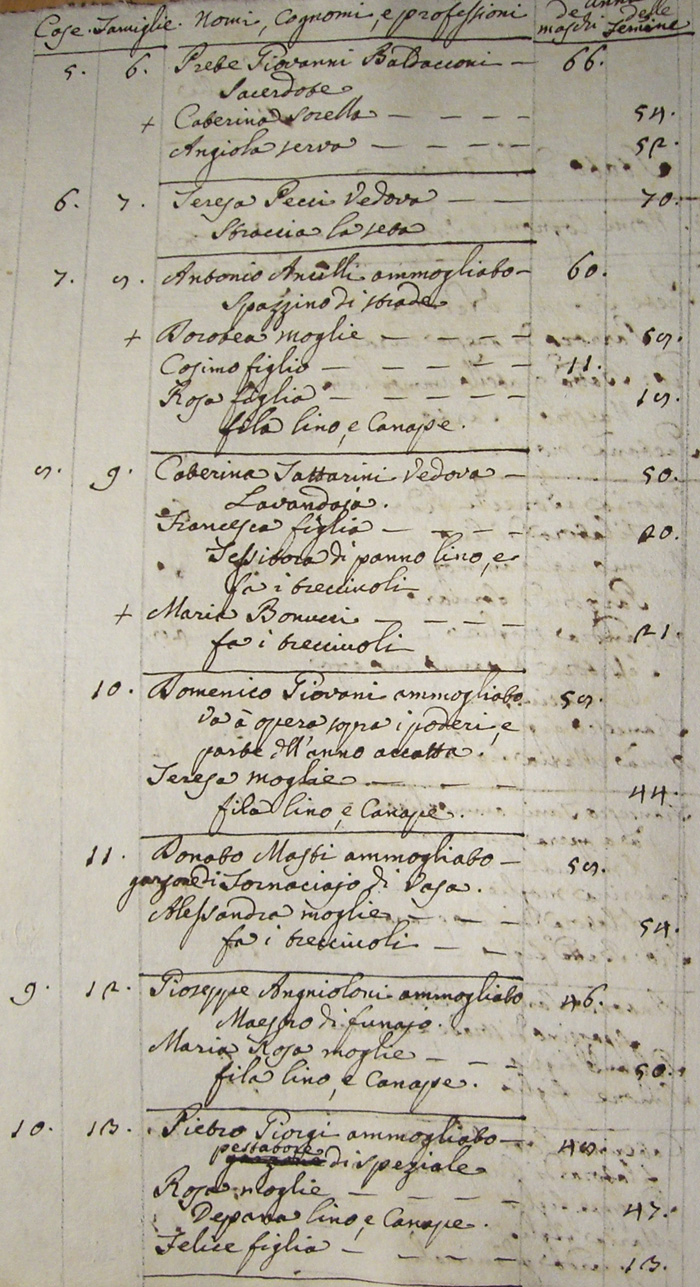 Case. Famiglie. Nomi, Cognomi, e professioni Anni de maschi. delle Femine
5. 6. Prete Giovanni Baldacconi — 66.
Sacerdote
+ Caterina sorella — — — — 54.
Angiola serva — — — — 52.
6. 7. Teresa Pecci Vedova — — 70.
Straccia la seta
7. 8. Antonio Ancilli ammogliato — 60.
Spazzino di strade
+ Dorotea moglie — — — — 58.
Cosimo figlio — — — — — 11.
Rosa figlia — — — — — 18.
fila lino, e Canape.
8. 9. Caterina Fattarini Vedova — 50.
Lavandaja.
Francesca figlia — — — — 20.
Tessitora di panno lino, e
fa i trecciuoli
+ Maria Bonucci — — — — 21.
fa i trecciuoli
10. Domenico Giovani ammogliato 58.
va à opera sopra i poderi, e
parte dell'anno accatta.
Teresa moglie — — — — 44.
fila lino, e Canape.
11. Donato Masti ammogliato — 58.
garzone di Fornaciajo di Vasa.
Alessandra moglie — — — 54.
fa i trecciuoli — — —
9. 12. Gioseppe Angnioloni ammogliato 46.
Maestro di funajo.
Maria Rosa moglie — — — 50.
fila lino, e Canape.
10. 13. Pietro Giorgi ammogliato — 48.
pestatore
di speziale
Rosa moglie — — — — 47.
Depana lino, e Canape.
Felice figlia — — — — 13.